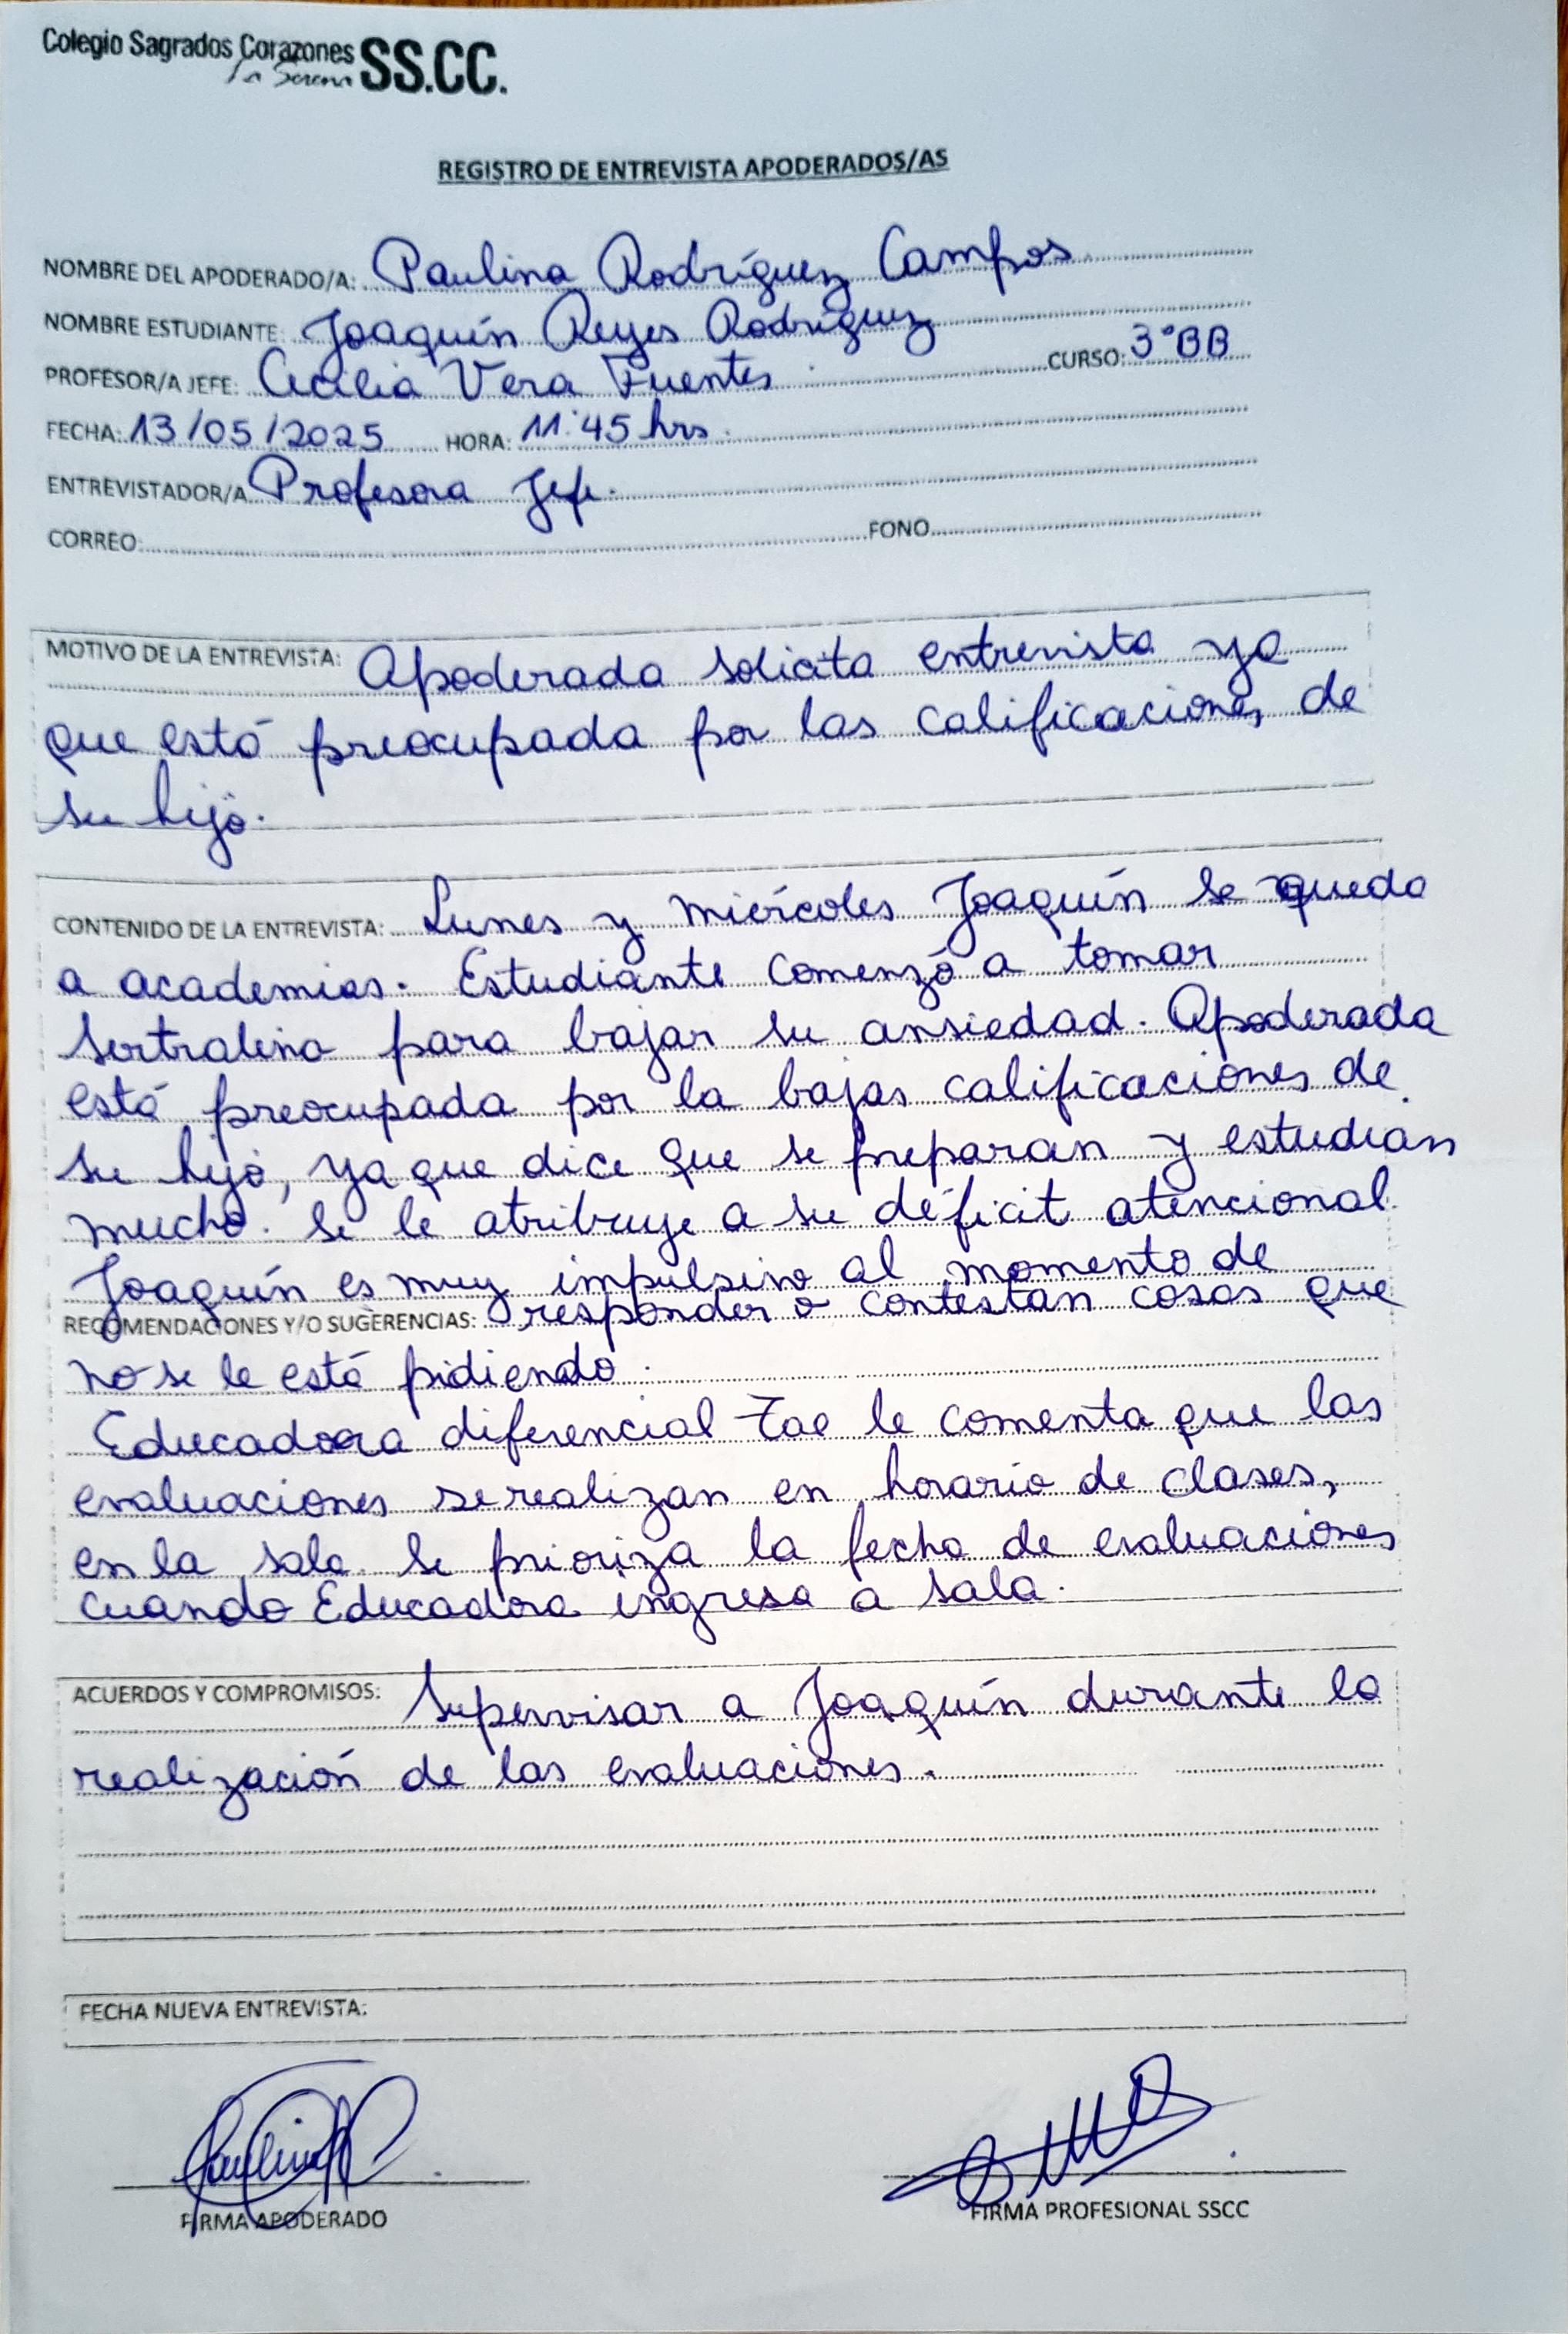 Colegio Sagrados Corazones SS.CC.
La Serena
REGISTRO DE ENTREVISTA APODERADOS/AS
NOMBRE DEL APODERADO/A: Paulina Rodríguez Campos
NOMBRE ESTUDIANTE: Joaquín Reyes Rodríguez
PROFESOR/A JEFE: Cecilia Vera Fuentes CURSO: 3°BB
FECHA: 13/05/2025 HORA: 11:45 hrs.
ENTREVISTADOR/A Profesora Jefe.
CORREO: FONO
MOTIVO DE LA ENTREVISTA: Apoderada solicita entrevista ya
que está preocupada por las calificaciones de
su hijo.
CONTENIDO DE LA ENTREVISTA: Lunes y miércoles Joaquín se queda
a academias. Estudiante comenzó a tomar
sertralina para bajar su ansiedad. Apoderada
está preocupada por la bajas calificaciones de
su hijo, ya que dice que se preparan y estudian
mucho. Se le atribuye a su déficit atencional.
Joaquín es muy impulsivo al momento de
RECOMENDACIONES Y/O SUGERENCIAS: responder o contestan cosas que
no se le está pidiendo.
Educadora diferencial le comenta que las
evaluaciones se realizan en horario de clases,
en la sala. Se prioriza la fecha de evaluaciones
cuando Educadora ingresa a sala.
ACUERDOS Y COMPROMISOS: Supervisar a Joaquín durante la
realización de las evaluaciones.
FECHA NUEVA ENTREVISTA:
FIRMA APODERADO
FIRMA PROFESIONAL SSCC